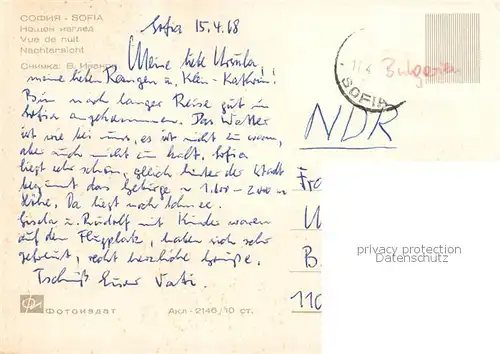 СОФИЯ - SOFIA
Нощен изглед
Vue de nuit
Nachtansicht
Снимка: В.
Sofia 15.4.68
Meine liebe Ursula,
meine lieben u. Klein-Kathrin!
Bin nach langer Reise gut in
Sofia angekommen. Das Wetter
ist wie bei uns, es ist nicht zu warm,
aber auch nicht zu kalt. Sofia
liegt sehr schön, gleich hinter der Stadt
beginnt das Gebirge 1.800-2000 m
Höhe. Da liegt noch Schnee.
Gisela u. Rudolf mit Kinder waren
auf dem Flugplatz, haben sich sehr
gefreut, recht herzliche Grüße.
Tschüß Euer Vati.
ФОТОИЗДАТ
Акл-2146, 10 ст.
SOFIA
Bulgaria
NDR
Fra
B
110
privacy protection
Datenschutz